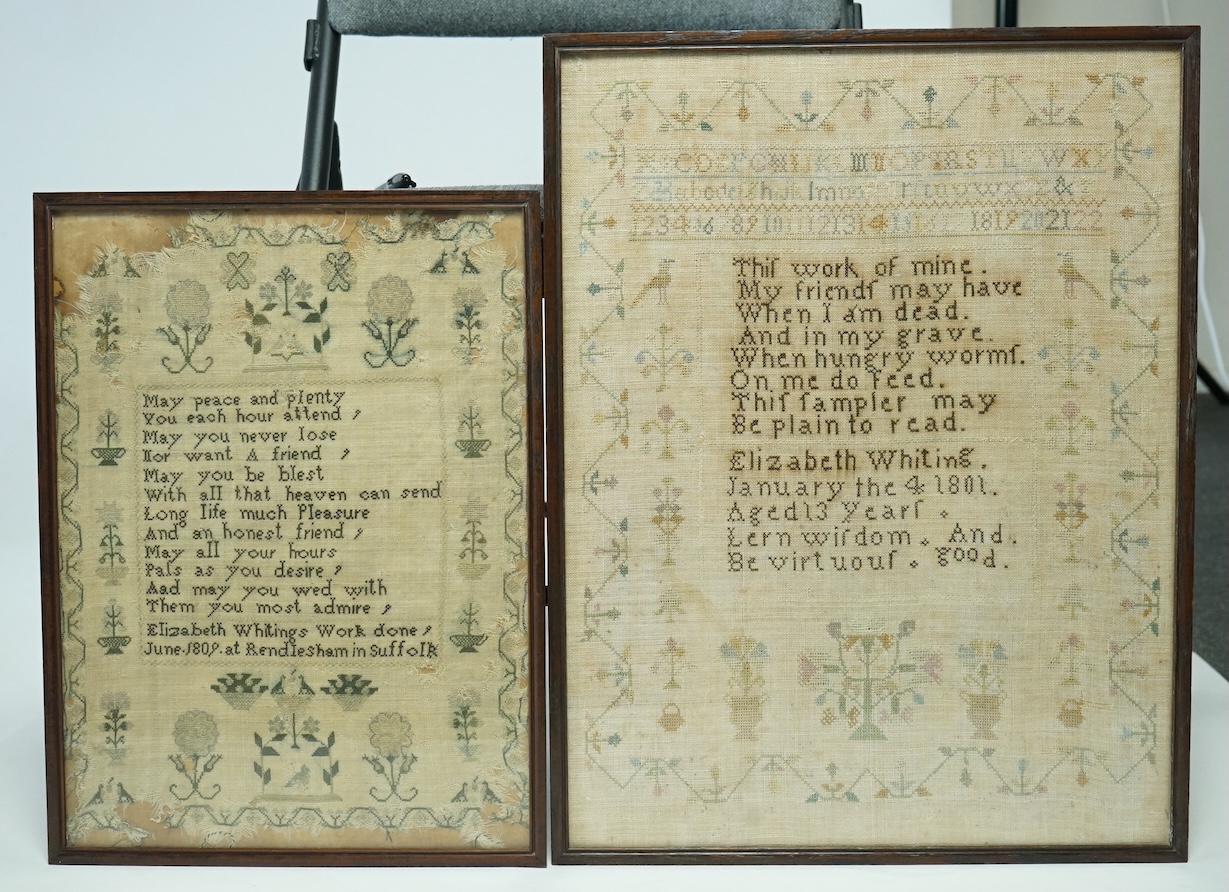 May peace and plenty
You each hour attend ,
May you never lose
Nor want A friend ,
May you be blest
With all that heaven can send
Long life much Pleasure
And an honest friend ,
May all your hours
Pals as you desire ,
Aad may you wed with
Them you most admire ,
Elizabeth Whitings Work done ,
June.1809.at Rendlesham in Suffolk
Thiſ work of mine .
My friendſ may have
When I am dead.
And in my grave.
When hungry wormſ.
On me do feed.
Thiſ ſampler may
Be plain to read.
Elizabeth Whiting.
January the 4 1801.
Aged 13 Yearſ .
Lern wiſdom . And .
Be virtuouſ . good .